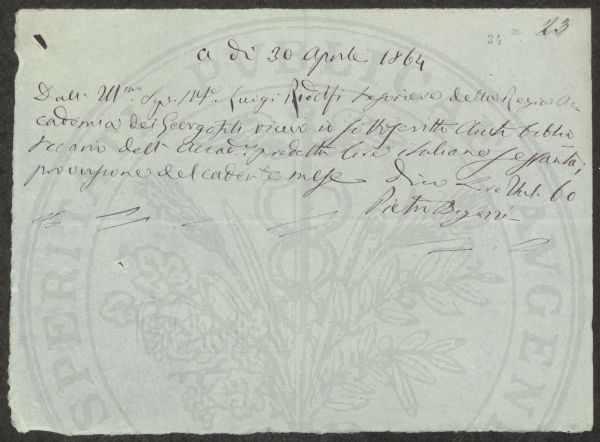 34 = 23
a dì 30 Aprile 1864
Dall' Ill.mo Sig. M.se Luigi Ridolfi tesoriere della Regia Ac
cademia dei Georgofili ricevo io sottoscritto biblio
tecario dell' Accad.a predetta lire italiane sessanta;
provvisione del cadente mese Dico Lire 60
Pietro Bigazzi
PUBLICAE
PROSPERITATI AUGENDAE